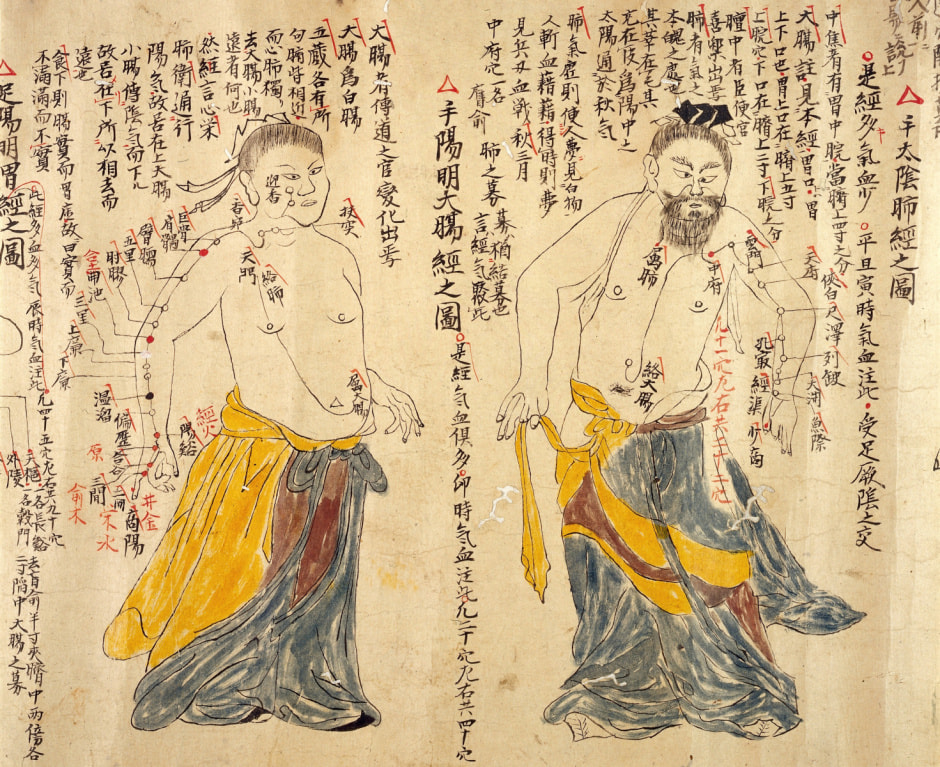 △手太陰肺經之圖
是經多氣血少 平旦寅時氣血注此 受足厥陰之交
中焦者有胃中脘當臍上四寸之分
大膓註見本經胃口胃
上下口也胃上口在臍上五寸
上脘穴下口在臍上二寸下脘之分
膻中者臣使官
喜樂出焉
肺者氣之
本魄之處也
其華在毛其
充在皮爲陽中之
太陽通於秋氣
肺氣虛則使人夢見白物
人斬血藉藉得時則夢
見兵刃血戰秋三月
中府穴名 膺俞 肺之募
募猶結募也
言經氣聚此
雲門
天府
俠白
尺澤
列缺
孔最
經渠
太渕
魚際
少商
中府
属肺
絡大膓
凡十一穴左右共二十二穴
△手陽明大膓經之圖
是經氣血俱多 卯時氣血注此 凡二十穴左右共四十穴
大膓者傳道之官變化出焉
大膓爲白膓
五藏各有所
句膓皆相近
而心肺獨
去大膓小膓
遠者何也
然經言心栄
肺衛通行
陽氣故居在上大膓
小膓傳陰氣而下
故居在下所以相去而
遠也
食下則膓實而胃虛故曰實而
不滿滿而不實
扶突
迎香
天門
絡肺
属大膓
巨骨
肩髃
臂臑
五里
肘髎
曲池
三里
上廉
下廉
温溜
偏歴
陽谿
經火
合谷
原
三間
俞木
二間
水
商陽
井金
△足陽明胃經之圖
此經多血多氣辰時氣血注此 凡四十五穴左右共九十穴
外陵
名長谿
名穀門
去肓俞半寸夾臍中兩傍各
二寸陷中大膓之募